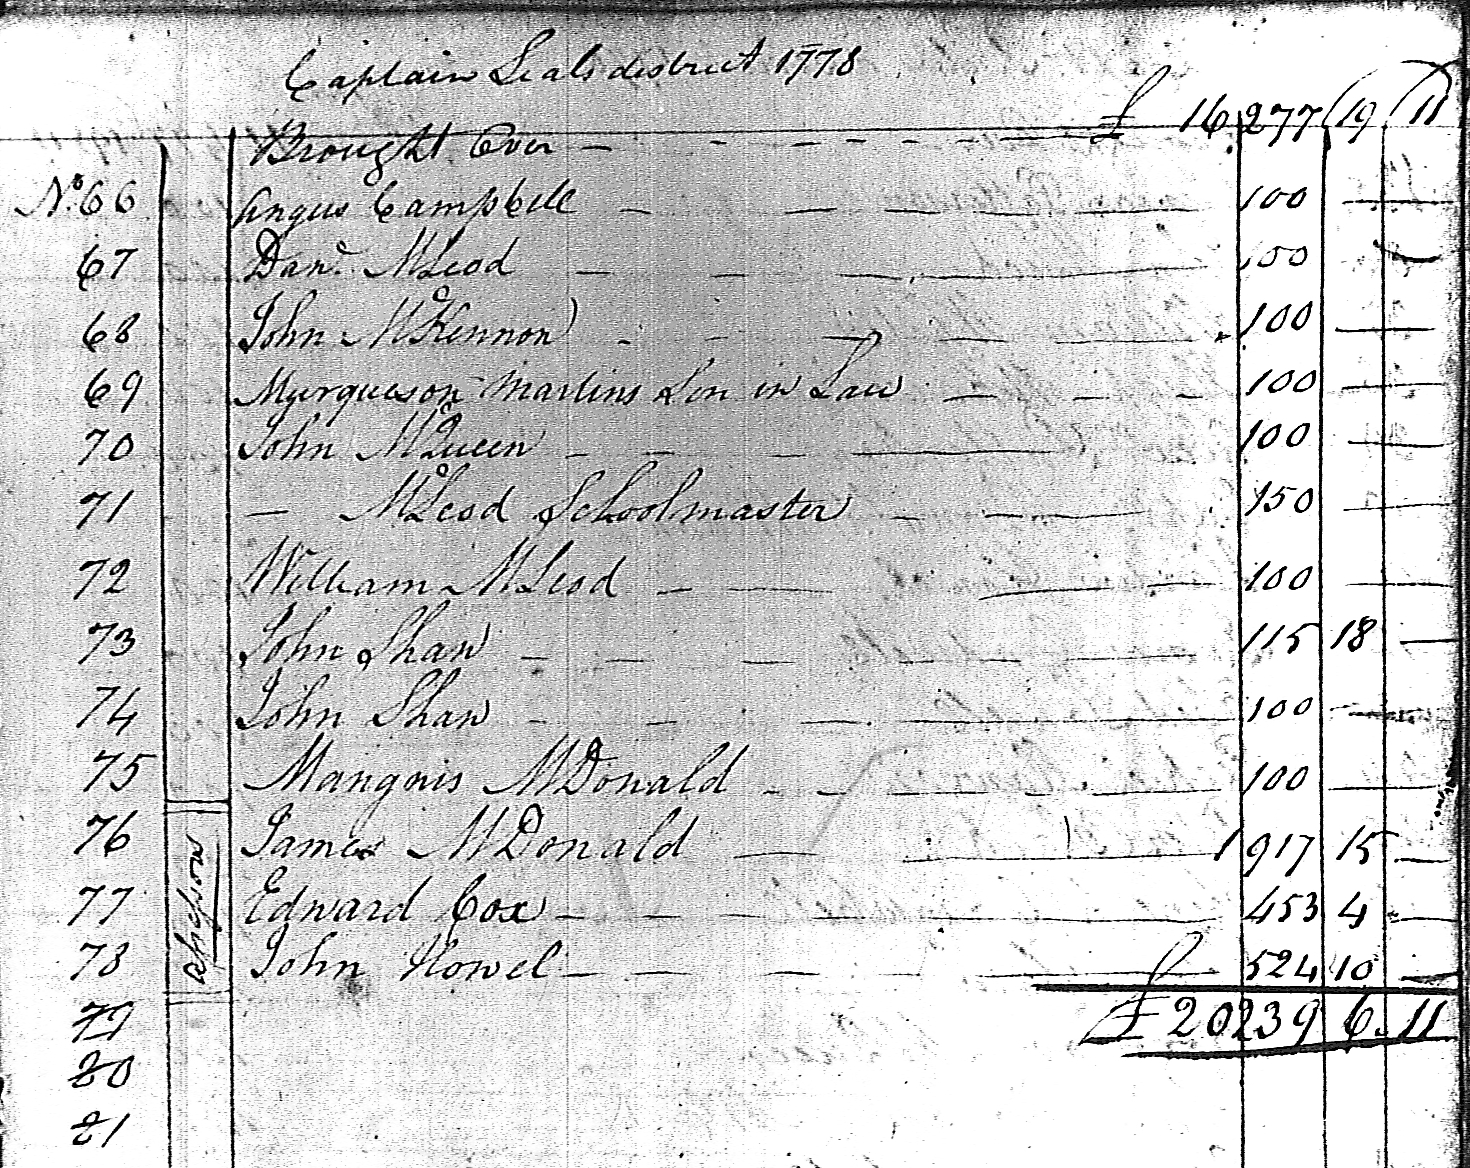 Captain Seals district 1778
Brought Over - - - - - - £ 16,277 19 11
No. 66 Angus Campbell - - - - 100 —
67 Danl. McLeod - - - - 100 —
68 John McKennon - - - - 100 —
69 Murqueson Martins Son in Law - - - 100 —
70 John McQueen - - - - 100 —
71 — McLeod Schoolmaster - - 150 —
72 William McLeod - - - - 100 —
73 John Shaw - - - - - 115 18 —
74 John Shaw - - - - 100 —
75 Mangnis McDonald - - - - 100 —
76 James McDonald - - 1917 15 —
77 Edward Cox - - - - 453 4 —
78 John Howel - - - - £ 524 10 —
79 £ 20239 6. 11
80
81